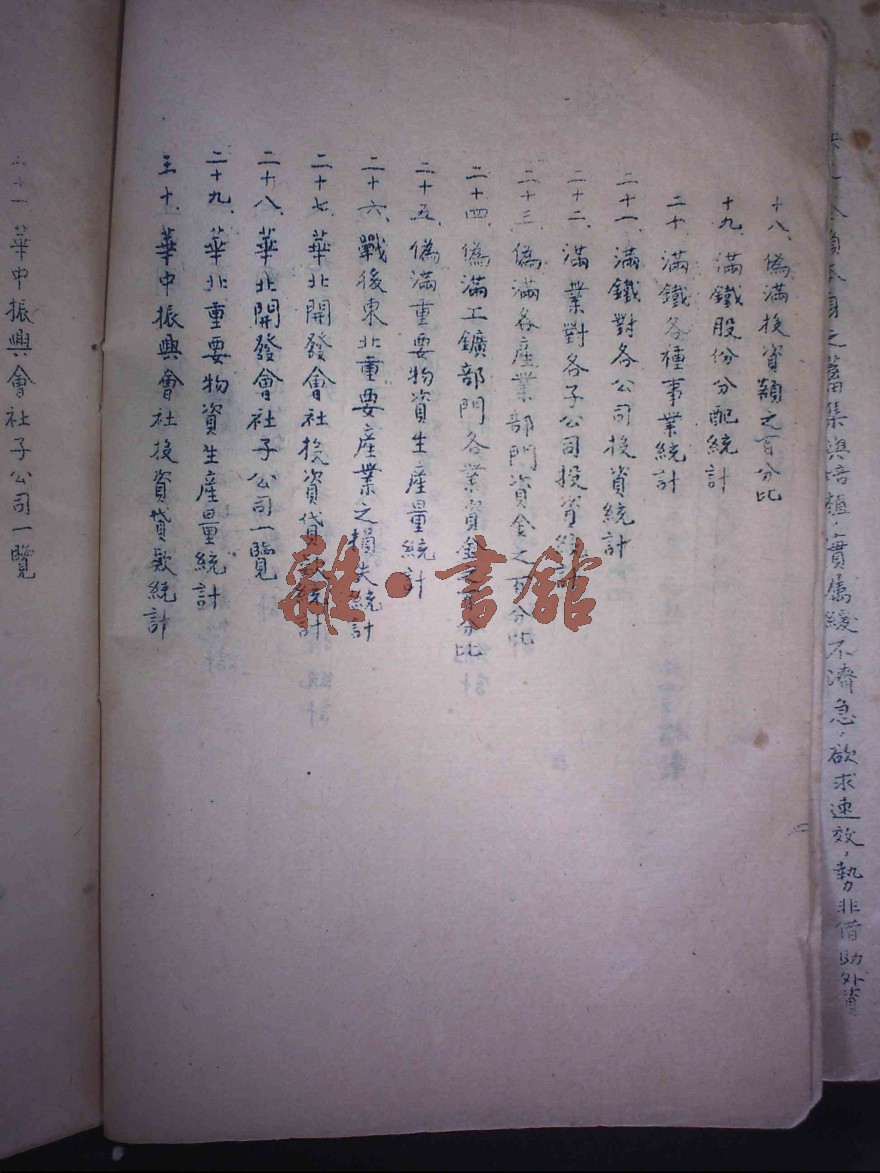 實屬緩不濟急，欲求速效，勢非借助外資
十八、偽滿投資額之百分比
十九、滿鐵股份分配統計
二十、滿鐵各種事業統計
二十一、滿鐵對各公司投資統計
二十二、滿業對各子公司投資統計
二十三、偽滿各產業部門資金之百分比
二十四、偽滿工鑛部門各業資金之百分比
二十五、偽滿重要物資生産量統計
二十六、戰後東北重要産業之損失統計
二十七、華北開發會社投資貸款統計
二十八、華北開發會社子公司一覽
二十九、華北重要物資生産量統計
三十、華中振興會社投資貸款統計
華中振興會社子公司一覽
雜·書館